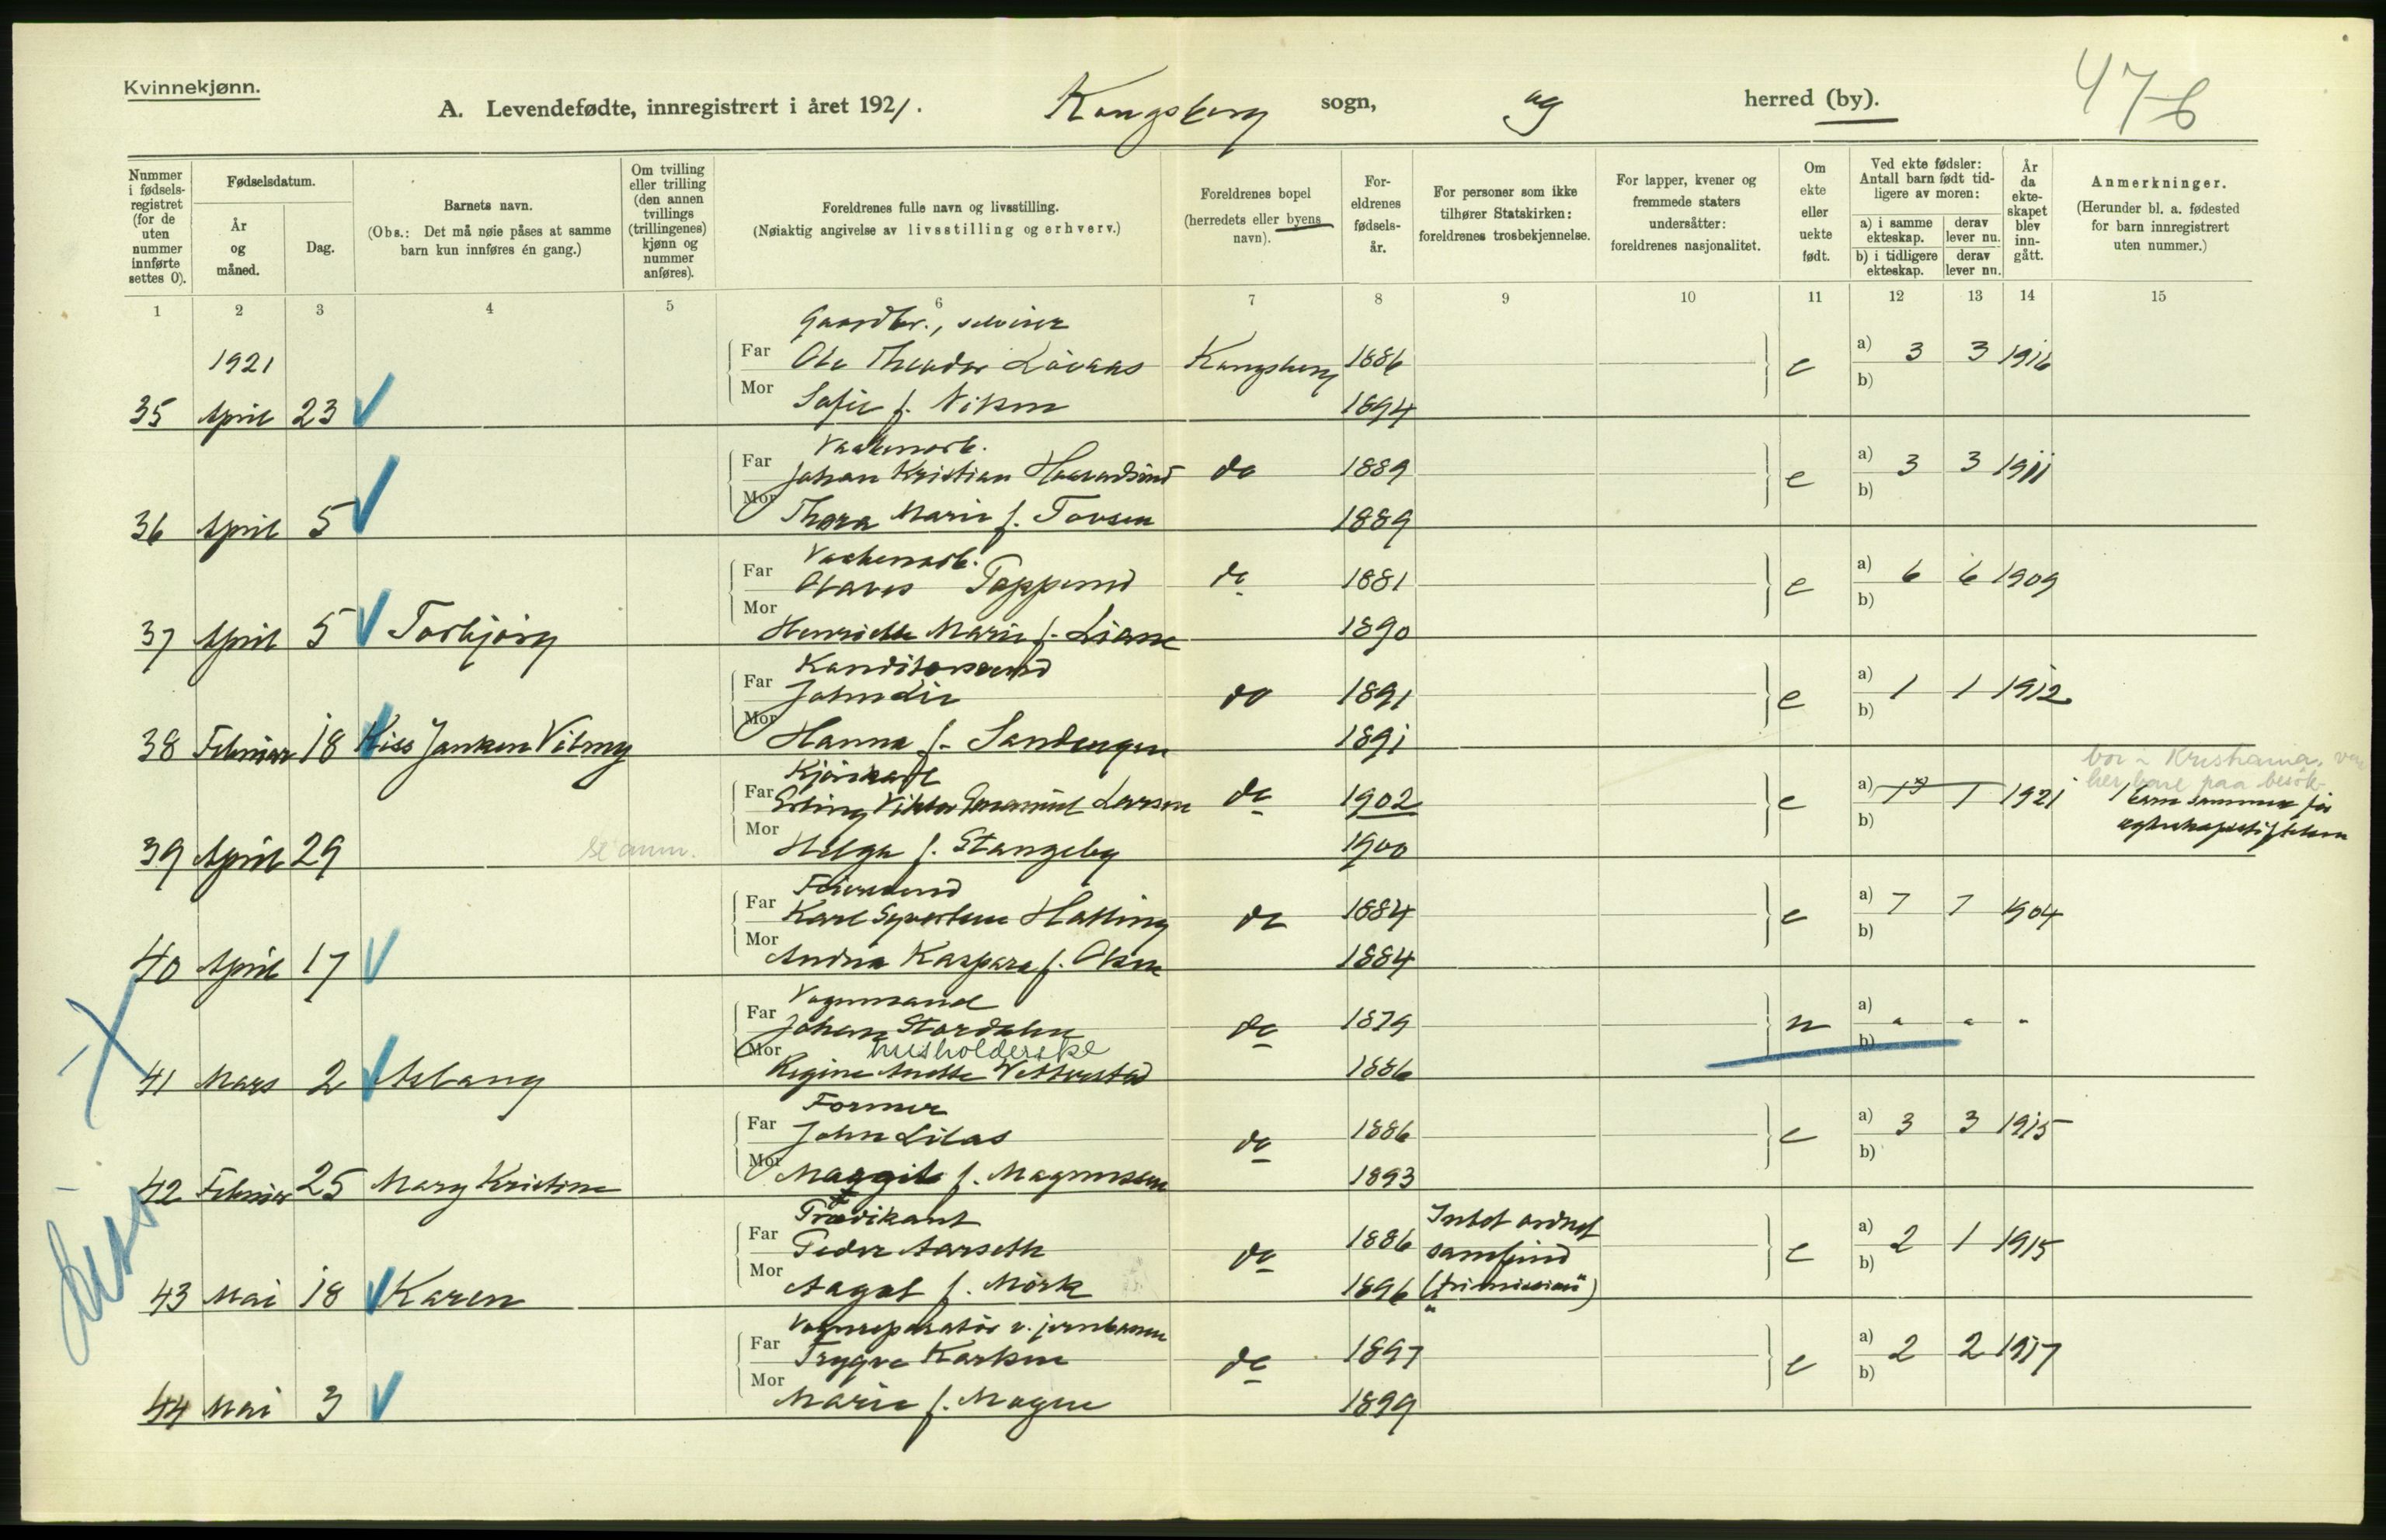 Kvinnekjønn.
A. Levendefødte, innregistrert i året 1921. Kongsberg sogn, og herred (by). 476
Nummer i fødsels-registret (for de uten nummer innførte settes 0).
Fødselsdatum.
År og måned.
Dag.
Barnets navn.
(Obs.: Det må nøie påses at samme barn kun innføres én gang.)
Om tvilling eller trilling (den annen tvillings (trillingenes) kjønn og nummer anføres).
Foreldrenes fulle navn og livsstilling.
(Nøiaktig angivelse av livsstilling og erhverv.)
Foreldrenes bopel (herredets eller byens navn).
For-eldrenes fødsels-år.
For personer som ikke tilhører Statskirken: foreldrenes trosbekjennelse.
For lapper, kvener og fremmede staters undersåtter: foreldrenes nasjonalitet.
Om ekte eller uekte født.
Ved ekte fødsler: Antall barn født tid-ligere av moren:
a) i samme ekteskap.
derav lever nu.
b) i tidligere ekteskap.
derav lever nu.
År da ekte-skapet blev inn-gått.
Anmerkninger.
(Herunder bl. a. fødested for barn innregistrert uten nummer.)
1 2 3 4 5 6 7 8 9 10 11 12 13 14 15
Gaardbr., selveier
1921 Far Ole Theodor Lövaas Kongsberg 1886 e a) 3 3 1916
b)
35 April 23 Mor Sofie f. Nilsen 1894
Vaabenarb.
Far Johan Kristian do 1889 e a) 3 3 1911
b)
36 April 5 Mor Thora Marie f. Tovsen 1889
Vaabenarb.
Far Olaves Toppund do 1881 e a) 6 6 1909
b)
37 April 5 Torbjörg Mor Henriette Marie f. 1890
Konditorsvend
Far John Lie do 1891 e a) 1 1 1912
b)
38 Februar 18 Kiss Janken Vilmy Mor Hanna f. Sandengen 1891
bor i Kristiania, var
her bare paa besök
Kjörekarl
Far Erling Viktor Emanuel Larsen do 1902 e a) 1 1 1921 1 barn sammen før
b) egteskapsstiftelsen
39 April 29 se anm. Mor Helga f. Stangeby 1900
Feiersvend
Far Karl Syvertsen Halling do 1884 e a) 7 7 1904
b)
40 April 17 Mor Andrea Kaspara f. Olsen 1884
Vognmand
Far Johan Stordalen do 1879 u a) - - -
husholderske b)
41 Mars 2 Aslaug Mor Regine Anette 1886
Former
Far John Lilas do 1886 e a) 3 3 1915
b)
42 Februar 25 Mary Kristine Mor Margit f. Magnussen 1893
Prædikant Intet ordnet
Far Peder Aarseth do 1886 samfund e a) 2 1 1915
b)
43 Mai 18 Karen Mor Aagot f. Mörk 1896 ("frimission")
Vognreparatör v. jernbanen
Far Trygve Karlsen do 1897 e a) 2 2 1917
b)
44 Mai 3 Mor Marie f. Mogen 1899